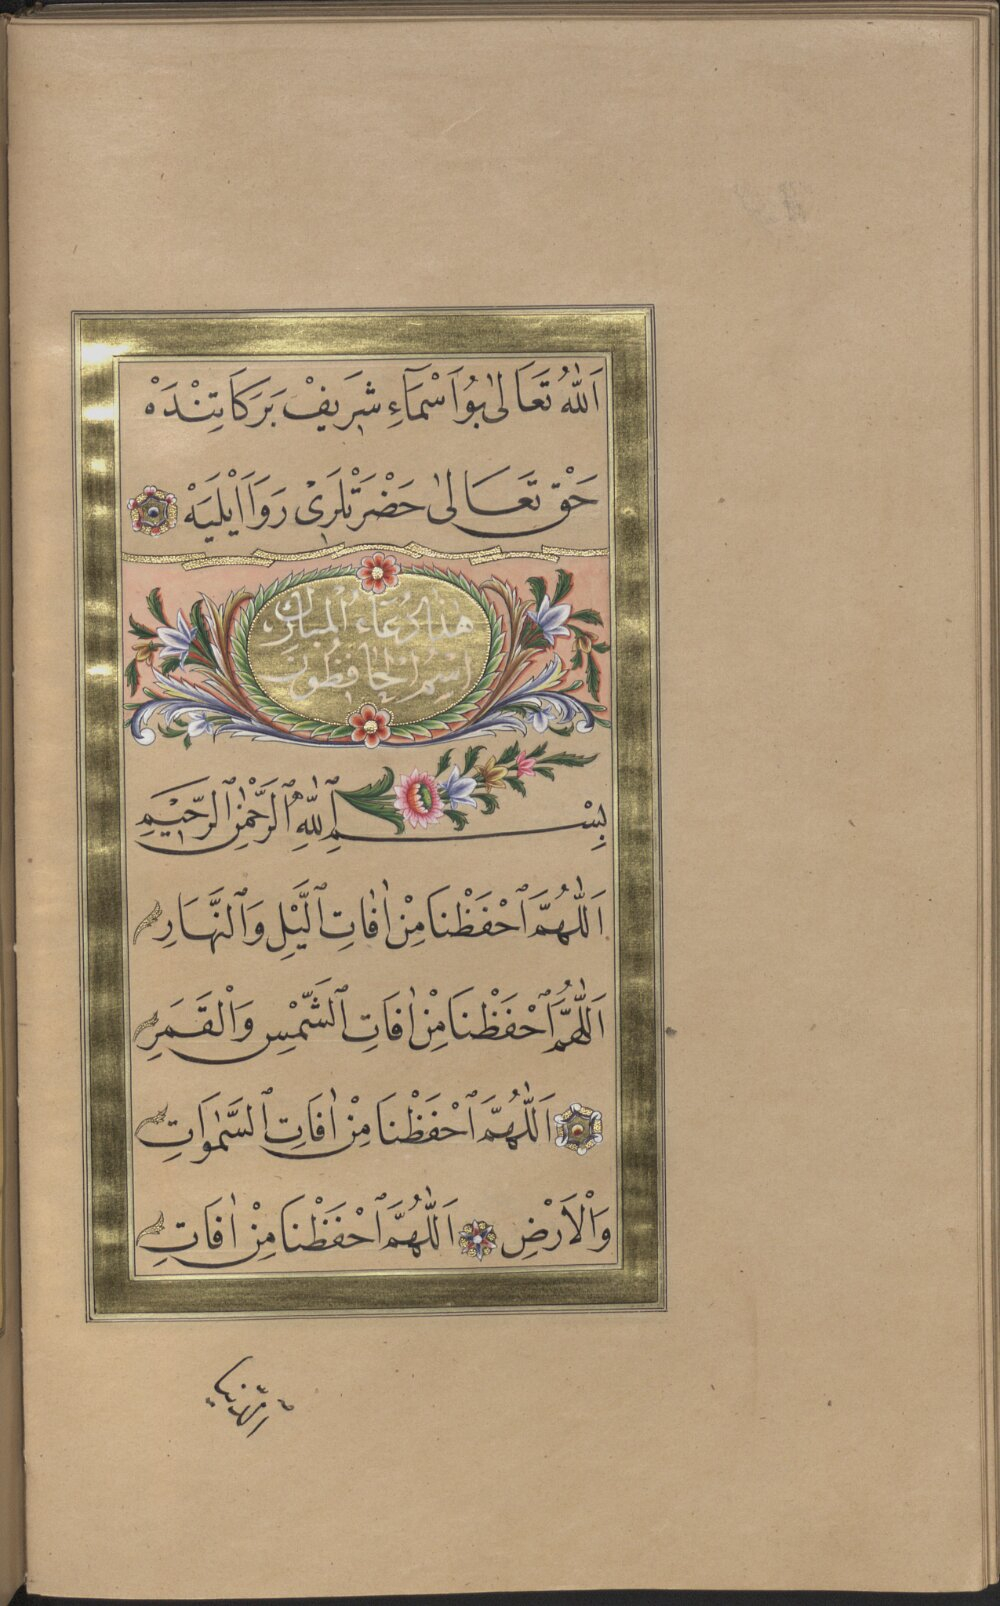 اَللّٰهُ تَعَالٰى بُو اَسْمَآءِ شَرِيفْ بَرَكَاتِنْدَهْ
حَقْ تَعَالٰى حَضْرَتْلَرِىْ رَوَا اَيْلِيَهْ
هٰذَا الدُّعَاءُ الْمُبَارَكْ
اِسْمُ الْحَافِظُونْ
بِسْمِ ٱللّٰهِ ٱلرَّحْمٰنِ ٱلرَّحِيْمِ
اَللّٰهُمَّ ٱحْفَظْنَا مِنْ اٰفَاتِ ٱلَّيْلِ وَٱلنَّهَارِ
اَللّٰهُمَّ ٱحْفَظْنَا مِنْ اٰفَاتِ ٱلشَّمْسِ وَٱلْقَمَرِ
اَللّٰهُمَّ ٱحْفَظْنَا مِنْ اٰفَاتِ ٱلسَّمٰوَاتِ
وَٱلْاَرْضِ اَللّٰهُمَّ ٱحْفَظْنَا مِنْ اٰفَاتِ
الدّنيا